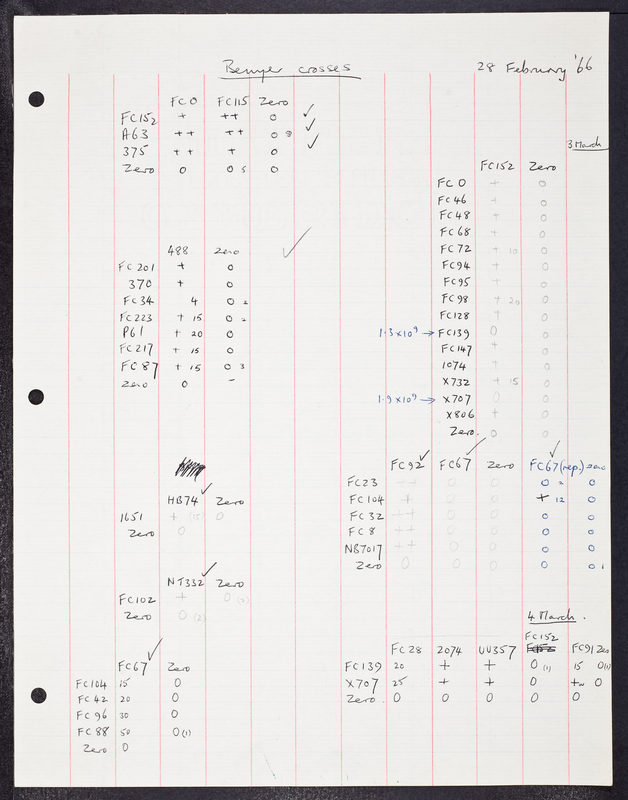 Benzer crosses 28 February '66
FC0 FC115 Zero
FC152 + ++ 0 ✓
A63 ++ ++ 0 3 ✓
375 ++ + 0 ✓
Zero 0 0 5 0
488 Zero ✓
FC201 + 0
370 + 0
FC34 4 0 2
FC223 + 15 0 2
P61 + 20 0
FC217 + 15 0
FC87 + 15 0 3
Zero 0 –
HB74 ✓ Zero
1651 + (15) 0
Zero 0
NT332 ✓ Zero
FC102 + 0 (2)
Zero 0 (2)
FC67 ✓ Zero
FC104 15 0
FC42 20 0
FC96 30 0
FC88 50 0 (1)
Zero 0
3 March
FC152 Zero
FC0 + 0
FC46 + 0
FC48 + 0
FC68 + 0
FC72 + 10 0
FC94 + 0
FC95 + 0
FC98 + 20 0
FC128 + 0
1.3 x 10⁹ → FC139 0 0
FC147 + 0
1074 + 0
X732 + 15 0
1.9 x 10⁹ → X707 0 0
X806 + 0
Zero. 0 0
FC92 ✓ FC67 ✓ Zero FC67 (rep.) ✓ zero
FC23 ++ 0 0 0 2 0
FC104 + 0 0 + 12 0
FC32 ++ 0 0 0 0
FC8 ++ 0 0 0 0
NB7017 ++ 0 0 0 0
Zero 0 0 0 0 0 1
4 March.
FC152
FC28 2074 UV357 FC91 Zero
FC139 20 + + 0 (1) 15 0(1)
X707 25 + + 0 + 0
Zero. 0 0 0 0 0